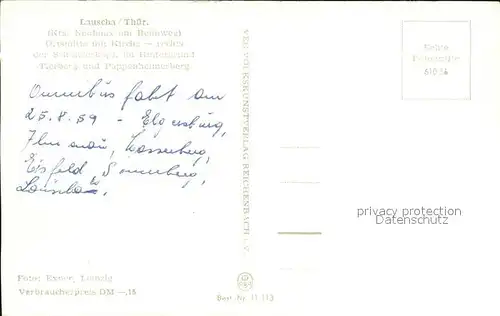 Lauscha / Thür.
(Krs. Neuhaus am Rennweg)
Ortsmitte mit Kirche — rechts
der im Hintergrund
Tierberg und Pappenheimerberg
Omnibus fahrt am
25.8.59 - Elgersburg,
Ilmenau,
Eisfeld, Sonneberg,
Lauscha
Foto: Exner, Leipzig
Verbraucherpreis DM -,15
VEB VOLKSKUNSTVERLAG REICHENBACH i. V.
Best.-Nr. H 113
Echte
privacy protection
watermark